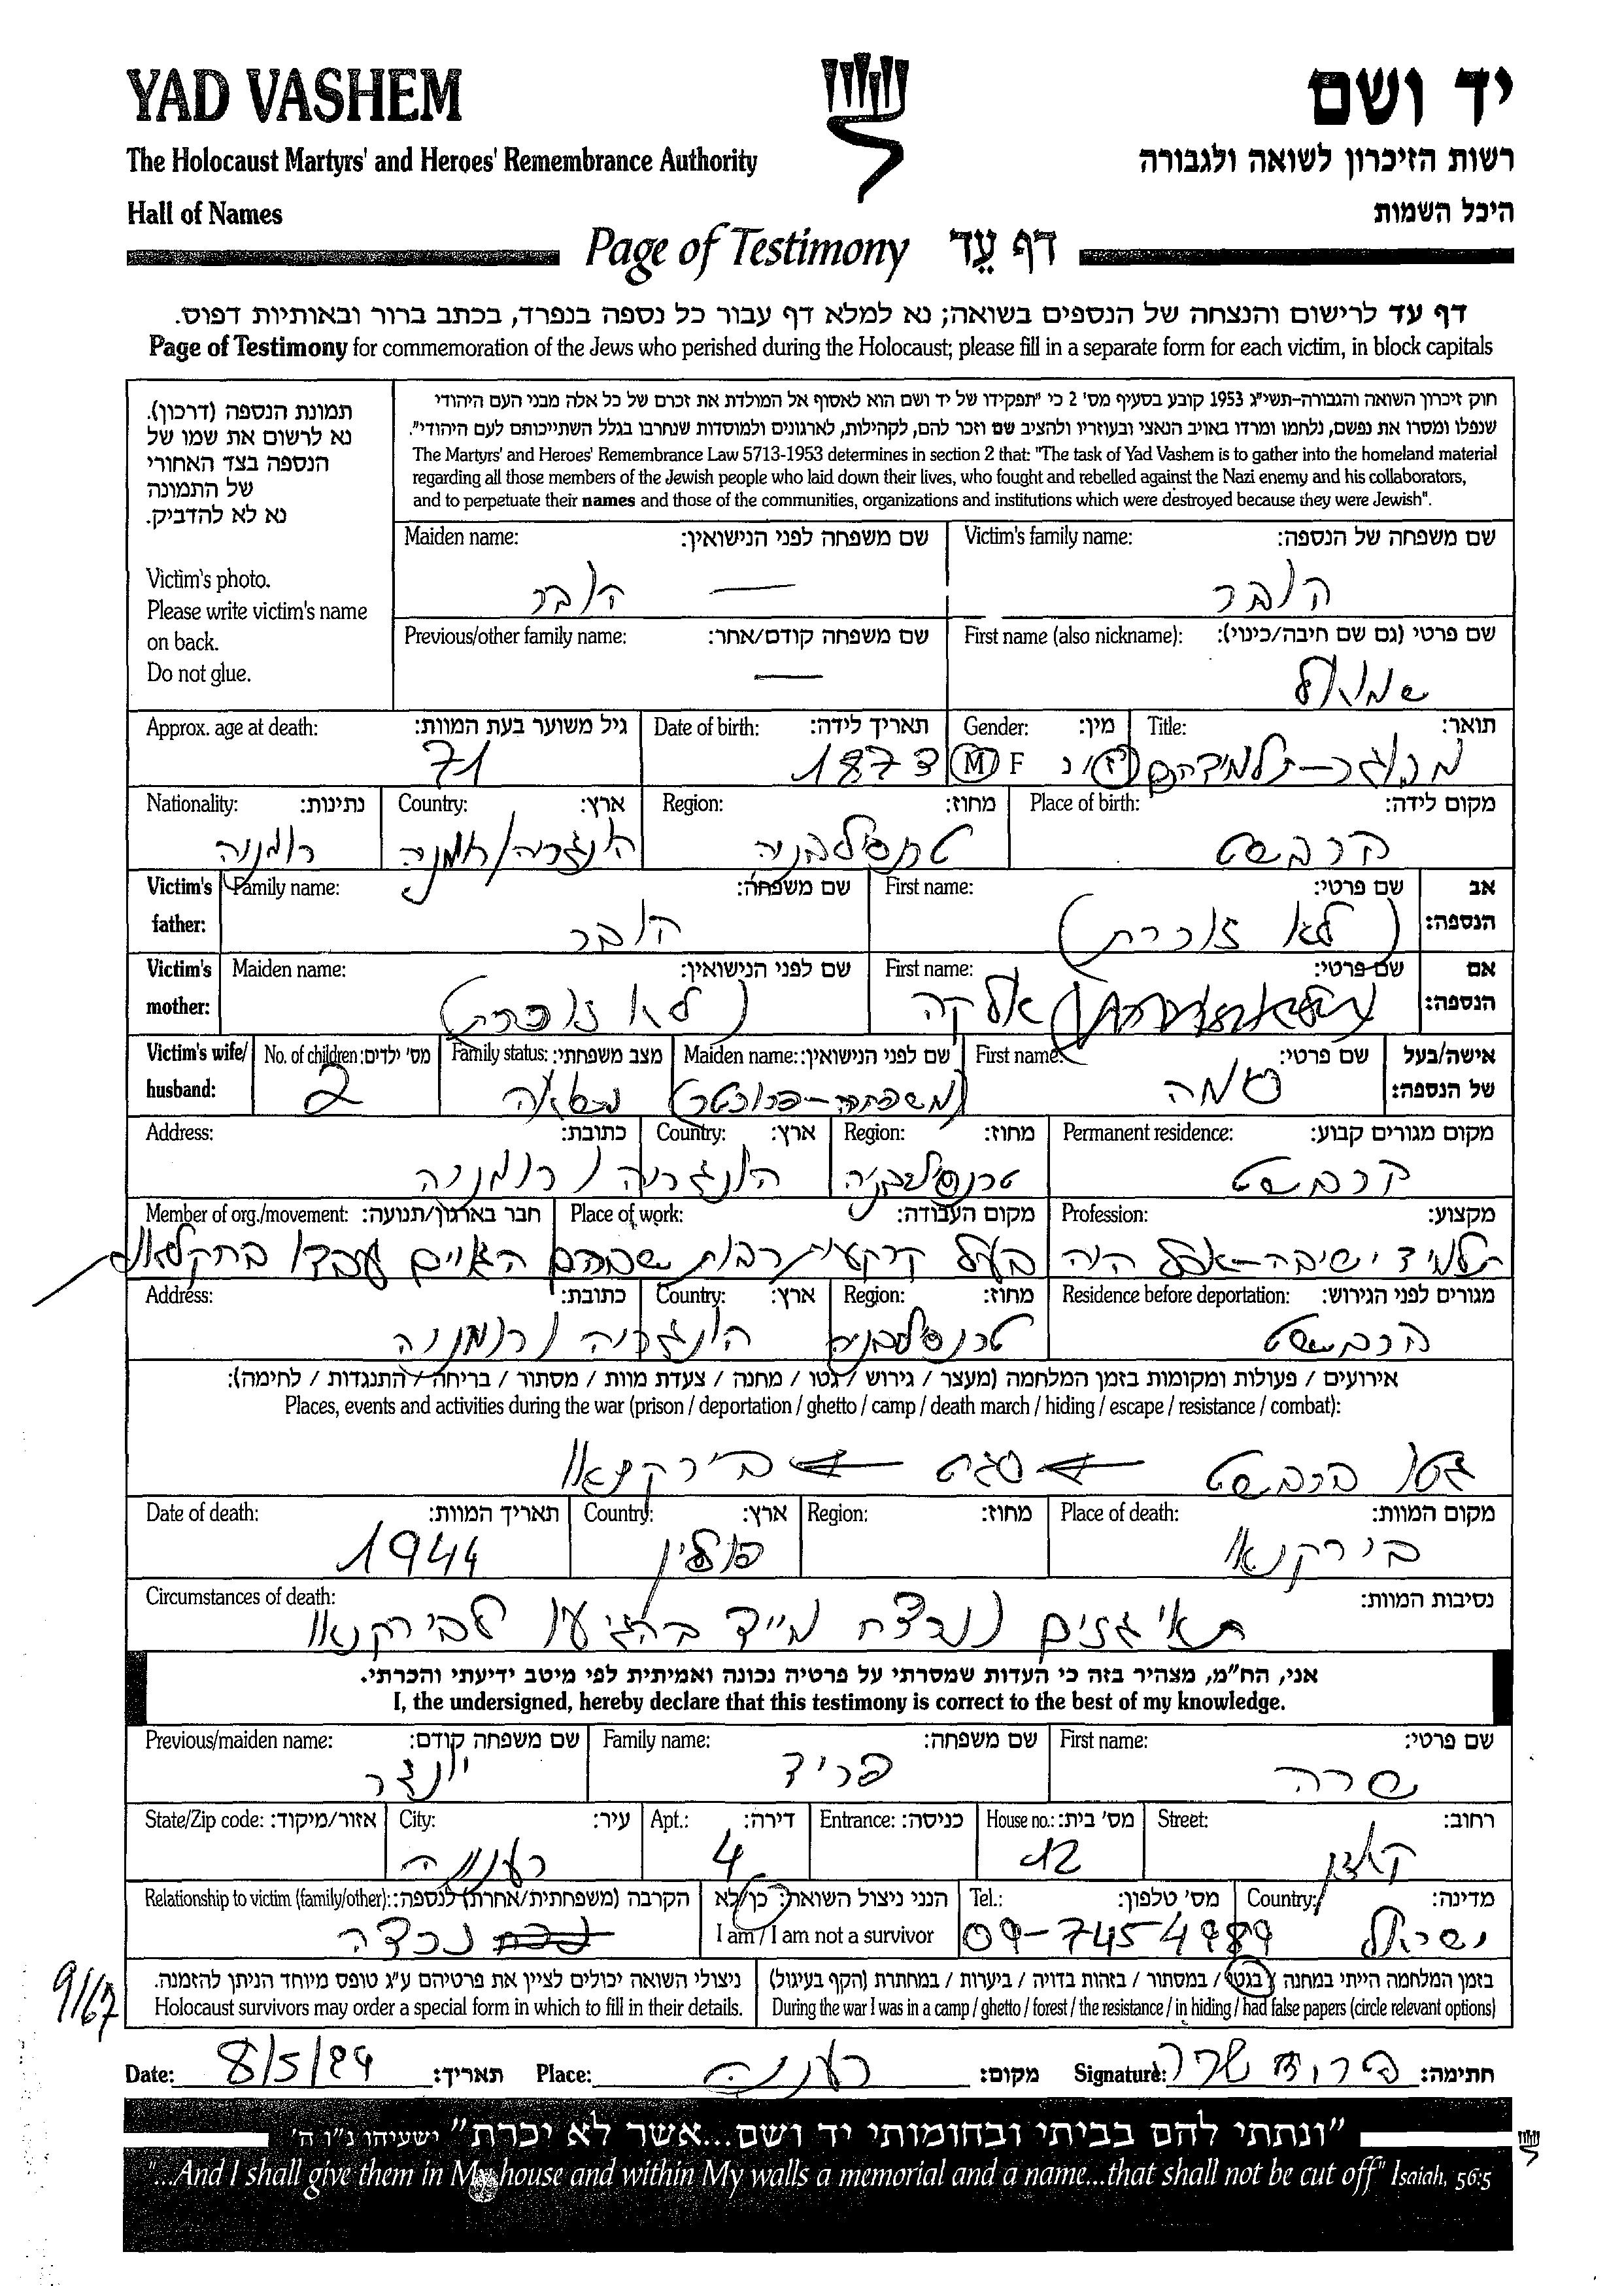 YAD VASHEM יד ושם
The Holocaust Martyrs' and Heroes' Remembrance Authority רשות הזיכרון לשואה ולגבורה
Hall of Names היכל השמות
Page of Testimony דף עֵד
דף עד לרישום והנצחה של הנספים בשואה; נא למלא דף עבור כל נספה בנפרד, בכתב ברור ובאותיות דפוס.
Page of Testimony for commemoration of the Jews who perished during the Holocaust; please fill in a separate form for each victim, in block capitals
תמונת הנספה (דרכון).
נא לרשום את שמו של
הנספה בצד האחורי
של התמונה
נא לא להדביק.
Victim's photo.
Please write victim's name
on back.
Do not glue.
חוק זיכרון השואה והגבורה-תשי"ג 1953 קובע בסעיף מס' 2 כי "תפקידו של יד ושם הוא לאסוף אל המולדת את זכרם של כל אלה מבני העם היהודי
שנפלו ומסרו את נפשם, נלחמו ומרדו באויב הנאצי ובעוזריו ולהציב שם וזכר להם, לקהילות, לארגונים ולמוסדות שנחרבו בגלל השתייכותם לעם היהודי".
The Martyrs' and Heroes' Remembrance Law 5713-1953 determines in section 2 that: "The task of Yad Vashem is to gather into the homeland material
regarding all those members of the Jewish people who laid down their lives, who fought and rebelled against the Nazi enemy and his collaborators,
and to perpetuate their names and those of the communities, organizations and institutions which were destroyed because they were Jewish".
Victim's family name: שם משפחה של הנספה: Maiden name: שם משפחה לפני הנישואין:
הובר — הובר
First name (also nickname): שם פרטי (גם שם חיבה/כינוי): Previous/other family name: שם משפחה קודם/אחר:
שמואל —
Title: תואר: Gender: מין: Date of birth: תאריך לידה: Approx. age at death: גיל משוער בעת המוות:
M F ז/נ 1873 71
Place of birth: מקום לידה: Region: מחוז: Country: ארץ: Nationality: נתינות:
טרנסילבניה הונגריה/רומניה רומניה
Victim's father: אב הנספה: First name: שם פרטי: Family name: שם משפחה:
(לא זוכרת) הובר
Victim's mother: אם הנספה: First name: שם פרטי: Maiden name: שם לפני הנישואין:
אלקה (לא זוכרת)
Victim's wife/husband: אישה/בעל של הנספה: First name: שם פרטי: Maiden name: שם לפני הנישואין: Family status: מצב משפחתי: No. of children: מס' ילדים:
נשואה 2
Permanent residence: מקום מגורים קבוע: Region: מחוז: Country: ארץ: Address: כתובת:
טרנסילבניה הונגריה / רומניה
Profession: מקצוע: Place of work: מקום העבודה: Member of org./movement: חבר בארגון/תנועה:
תלמיד ישיבה-אבל היה בעל קרקעות רבות שבהם הגויים עבדו בחקלאות
Residence before deportation: מגורים לפני הגירוש: Region: מחוז: Country: ארץ: Address: כתובת:
טרנסילבניה הונגריה / רומניה
אירועים / פעולות ומקומות בזמן המלחמה (מעצר / גירוש / גטו / מחנה / צעדת מוות / מסתור / בריחה / התנגדות / לחימה):
Places, events and activities during the war (prison / deportation / ghetto / camp / death march / hiding / escape / resistance / combat):
גטו ← סגט ← בירקנאו
Place of death: מקום המוות: Region: מחוז: Country: ארץ: Date of death: תאריך המוות:
בירקנאו פולין 1944
Circumstances of death: נסיבות המוות:
תאי גזים נרצח מייד בהגיעו לבירקנאו
אני, הח"מ, מצהיר בזה כי העדות שמסרתי על פרטיה נכונה ואמיתית לפי מיטב ידיעתי והכרתי.
I, the undersigned, hereby declare that this testimony is correct to the best of my knowledge.
First name: שם פרטי: Family name: שם משפחה: Previous/maiden name: שם משפחה קודם:
שרה פריד יונצר
Street: רחוב: House no.: מס' בית: Entrance: כניסה: Apt.: דירה: City: עיר: State/Zip code: אזור/מיקוד:
12 4 רעננה
Country: מדינה: Tel.: מס' טלפון: הנני ניצול השואה: כן/לא Relationship to victim (family/other): הקרבה (משפחתית/אחרת) לנספה:
ישראל 09-7454989 I am / I am not a survivor נכדה
בזמן המלחמה הייתי במחנה / בגטו / במסתור / בזהות בדויה / ביערות / במחתרת (הקף בעיגול)
During the war I was in a camp / ghetto / forest / the resistance / in hiding / had false papers (circle relevant options)
ניצולי השואה יכולים לציין את פרטיהם ע"ג טופס מיוחד הניתן להזמנה.
Holocaust survivors may order a special form in which to fill in their details.
9/67
Date: 8/5/99 תאריך: Place: רעננה מקום: Signature: חתימה:
"ונתתי להם בביתי ובחומותי יד ושם...אשר לא יכרת" ישעיהו נ"ו ה'
"...And I shall give them in My house and within My walls a memorial and a name...that shall not be cut off" Isaiah, 56:5